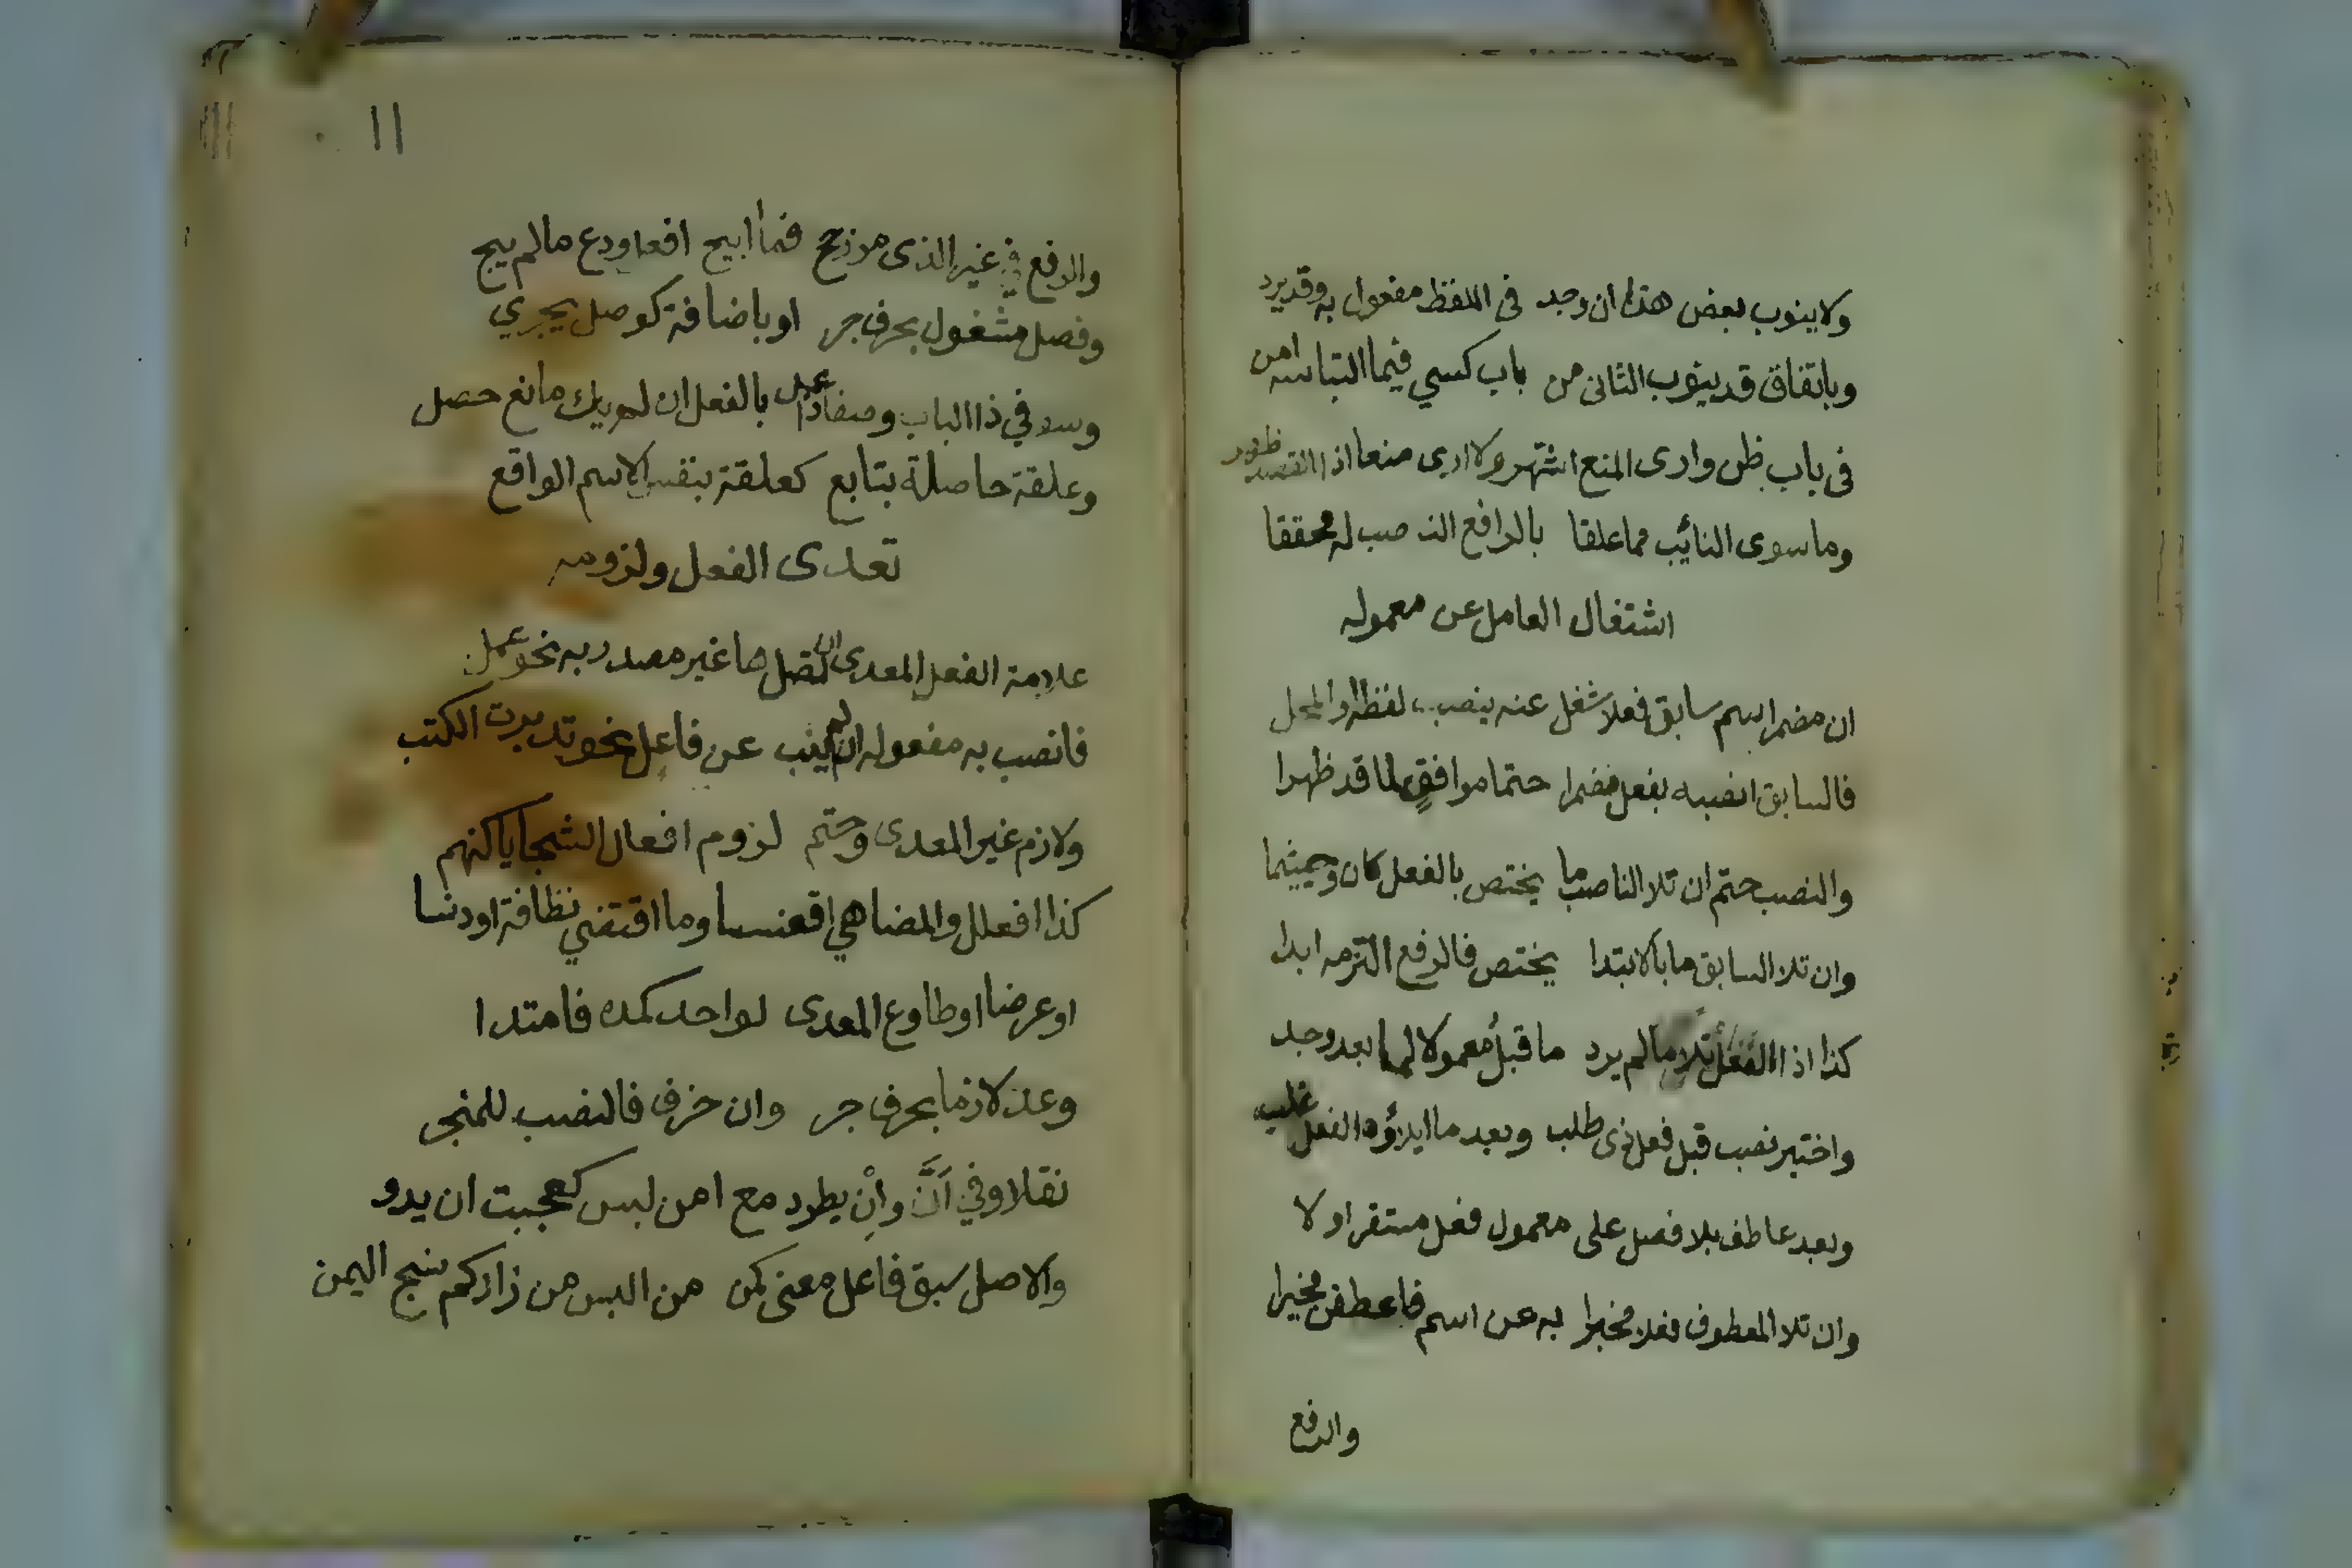 ولاينوب بعض هذا ان وجد في اللفظ مفعول به وقد يرد
وباتفاق قد ينوب الثاني من باب كسي فيما التباسه امن
في باب ظن وارى المنع اشتهر ولا ارى منعا اذا القصد ظهر
وما سوى النائب مما علقا بالرافع النصب له محققا
اشتغال العامل عن معموله
ان مضمر اسم سابق فعلا شغل عنه بنصب لفظه او المحل
فالسابق انصبه بفعل مضمرا حتما موافق لما قد ظهرا
والنصب حتم ان تلا الناصب ما يختص بالفعل كان وحيثما
وان تلا السابق ما بالابتدا يختص فالرفع التزمه ابدا
كذا اذا الفعل تلا ما لم يرد ما قبل معمولا لما بعد وجد
واختير نصب قبل فعل ذى طلب وبعد ما ايلاؤه الفعل غلب
وبعد عاطف بلا فصل على معمول فعل مستقر اولا
وان تلا المعطوف فعلا مخبرا به عن اسم فاعطفن مخيرا
والرفع
١١
والرفع في غير الذى مر رجح فما ابيح افعل ودع ما لم يبح
وفصل مشغول بحرف جر او باضافة كوصل يجري
وسو في ذا الباب وصفا ذا عمل بالفعل ان لم يك مانع حصل
وعلقة حاصلة بتابع كعلقة بنفس الاسم الواقع
تعدى الفعل ولزومه
علامة الفعل المعدى ان تصل ها غير مصدر به نحو عمل
فانصب به مفعوله ان لم ينب عن فاعل نحو تدبرت الكتب
ولازم غير المعدى وحتم لزوم افعال السجايا كنهم
كذا افعلل والمضاهي اقعنسسا وما اقتضي نظافة او دنسا
او عرضا او طاوع المعدى لواحد كمده فامتدا
وعد لازما بحرف جر وان حذف فالنصب للمنجر
نقلا وفي أَنَّ وأنْ يطرد مع امن لبس كعجبت ان يدو
والاصل سبق فاعل معنى كمن من البس من زاركم نسج اليمن